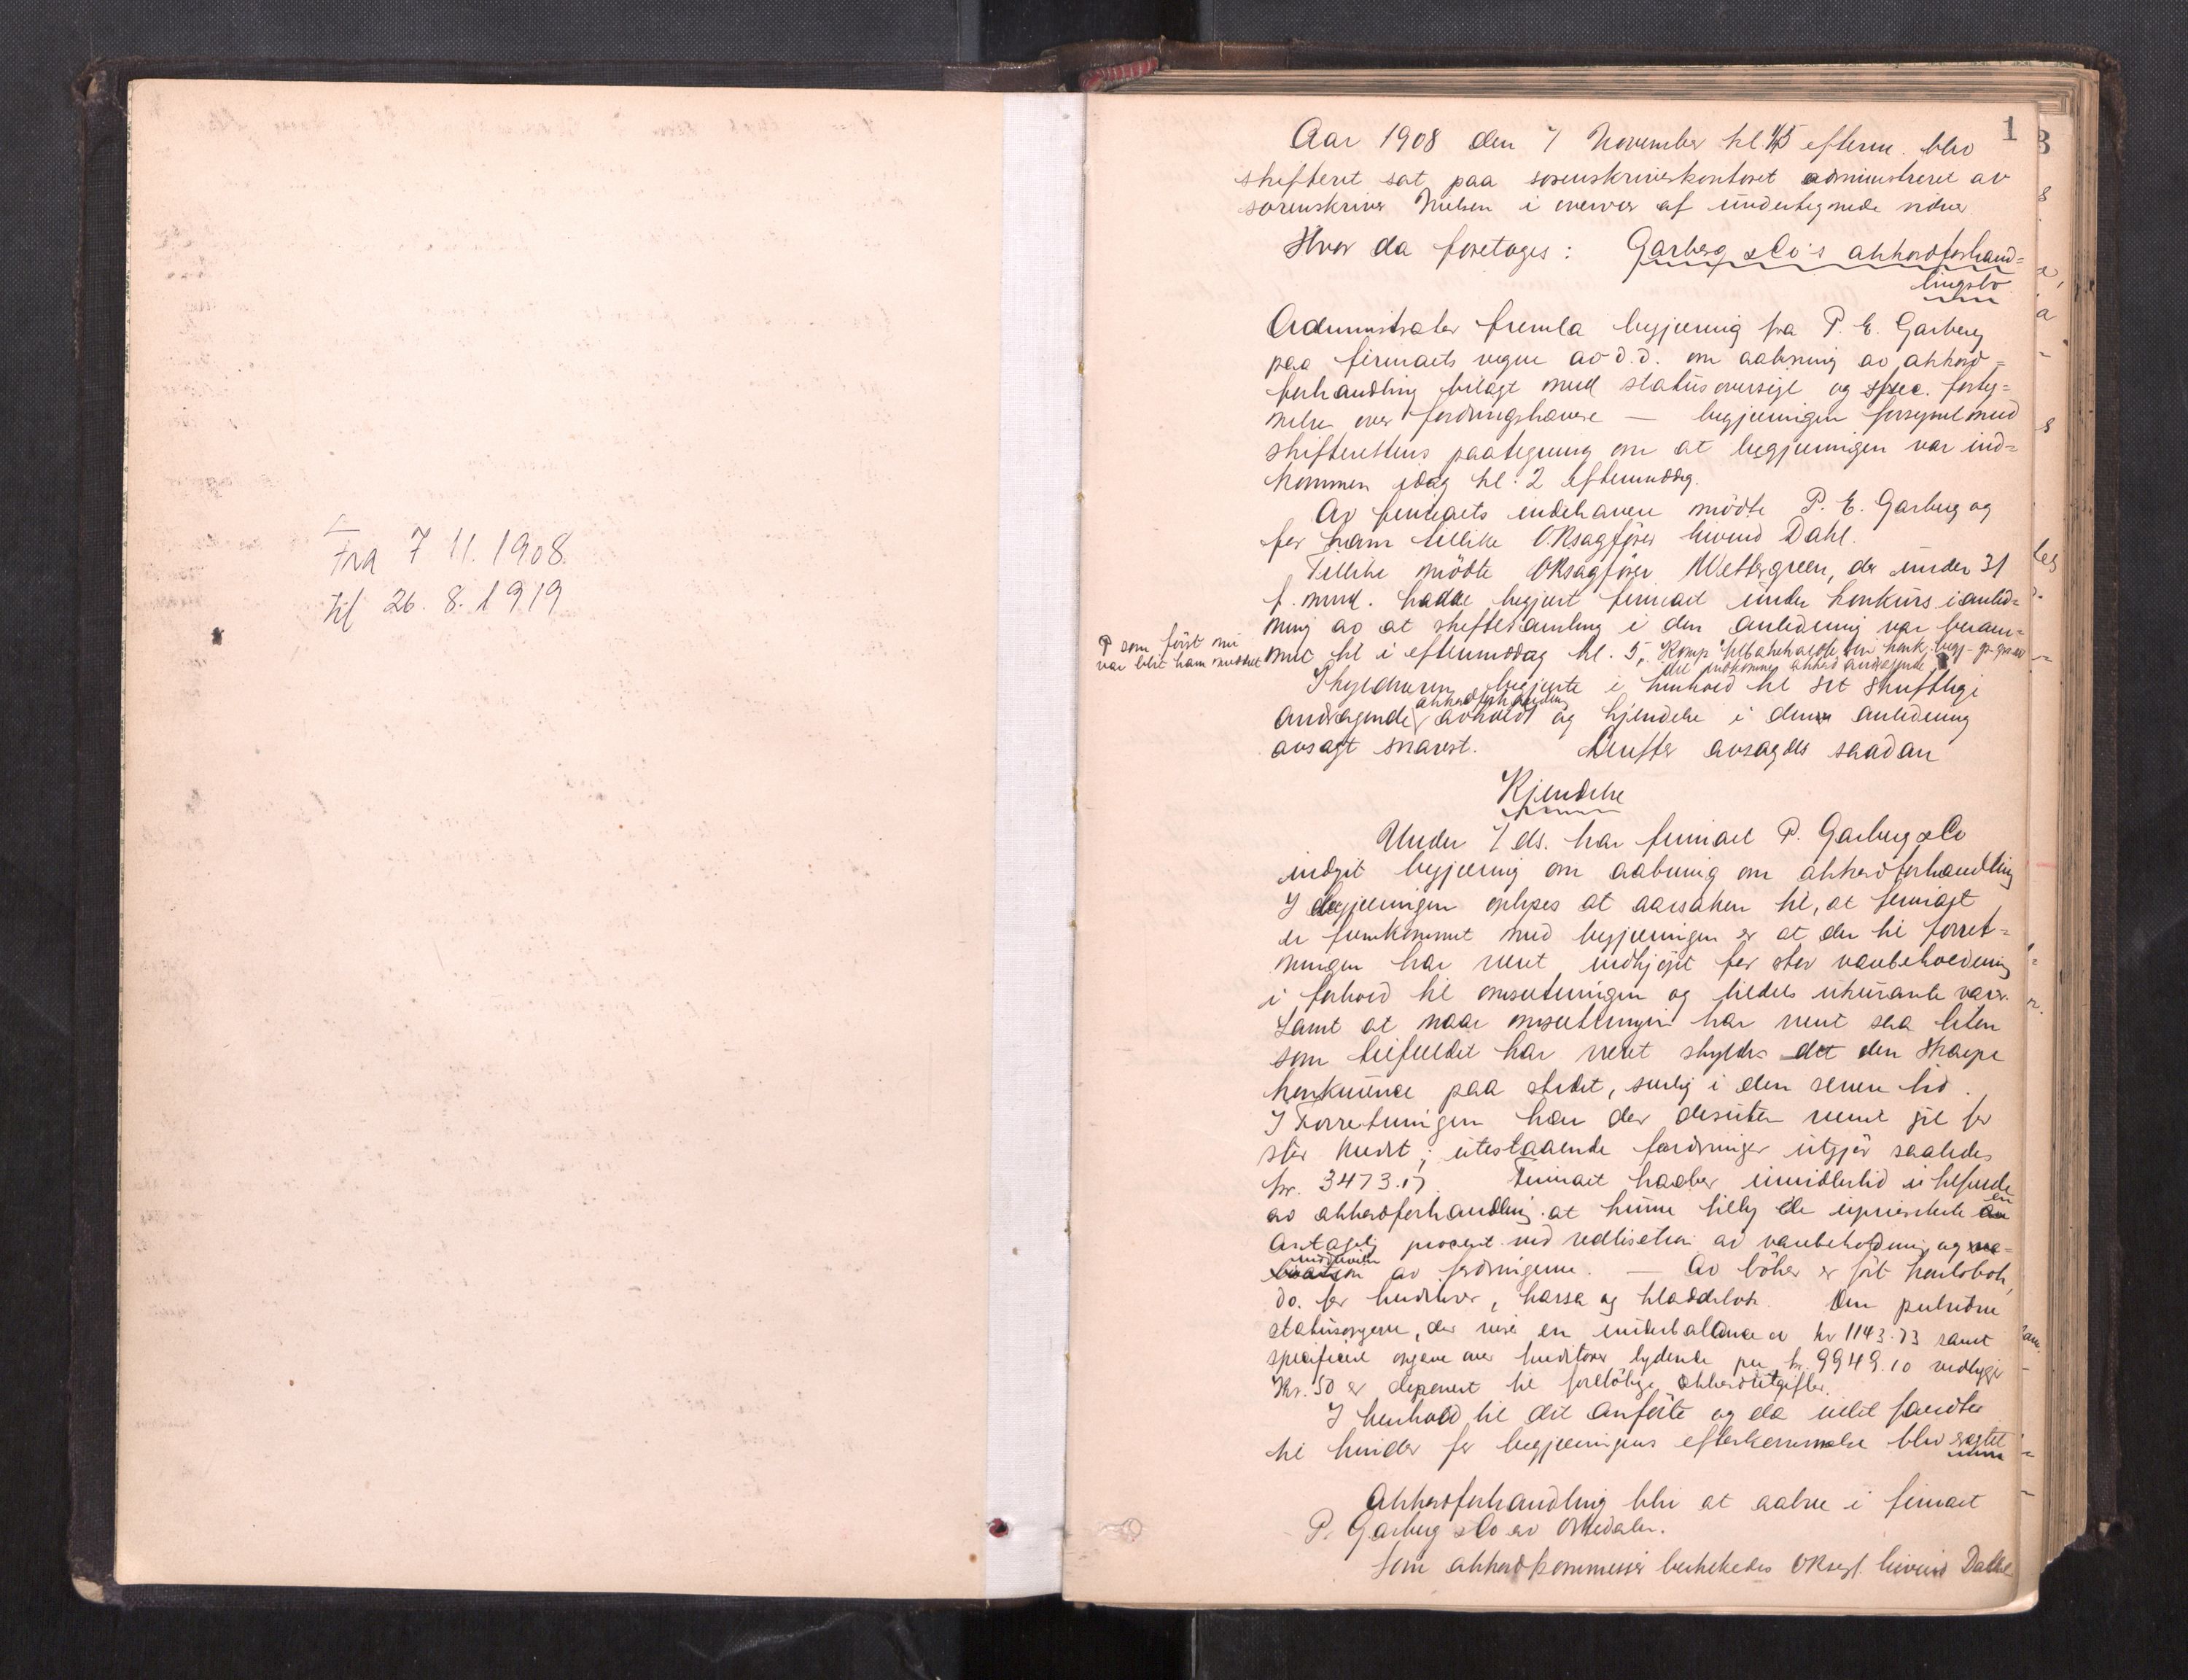 Fra 7 11. 1908.
til 26. 8. 1919
1
Aar 1908 den 7 November kl 4/5 efterm. blev
skifteret sat paa sorenskriverkontoret administreret av
sorenskriver Nielsen i overvær af undertegnede vidner
Hvor da foretoges: Garberg & Co's akkordforhand=
lingsbo
Administrator fremla begjæring fra P. E. Garberg
paa firmaets vegne av d.d. om aabning av akkord=
forhandling bilagt med statusoversigt og spec. forteg=
nelse over fordringshavere — begjæringen forsynet med
skifterettens paategning om at begjæringen var ind=
kommen idag kl. 2 eftermiddag.
Av firmaets indehavere mödte P. E. Garberg og
for ham tillike ORsagförer Eivind Dahl.
Tillike mödte ORsagförer Wettergreen, der under 31
f. mnd. hadde begjært firmaet under konkurs i anled=
ning av at skiftesamling i den anledning var beram=
met til i eftermiddag kl. 5,
P som först nu
var blit ham meddelt
Skyldneren begjærte i henhold til sit skriftlige
andragende akkordforhandling avholdt og kjendelse i denne anledning
avsagt snarest. Derefter avsagdes saadan
Kjendelse
Under 7 ds. har firmaet P. Garberg & Co
indgit begjæring om aabning om akkordforhandling
I begjæringen oplyses at aarsaken til, at firmaet
er fremkommet med begjæringen er at der til forret=
ningen har været indkjöpt for stor varebeholdning
i forhold til omsætningen og tildels ukurante varer.
Samt at naar omsætningen har været saa liten
som tilfældet har været skyldes det den skarpe
konkurrence paa stedet, særlig i den senere tid.
I Forretningen har der desuten været git for
stor kredit; utestaaende fordringer utgjör saaledes
kr. 3473.17. Firmaet haaber imidlertid i tilfælde
av akkordforhandling at kunne tilby de upriviligerte en
antagelig procent ved realisation av varebeholdning og
inddrivelse av fordringerne. — Av böker er fört hovedbok,
do. for kreditorer, kassa og kladdebok. Den
statusopgave, der viser en underballance av kr 1143.73 samt
specificert opgave over kreditorer lydende paa kr. 9949.10 vedlegges
Kr. 50 er deponert til forelöbige akkordutgifter.
I henhold til det anförte og da intet fandtes
til hinder for begjæringens efterkommelse blev eragtet
Akkordforhandling blir at aabne i firmaet
P. Garberg & Co av Orkedalen.
Som akkordkommissær beskikkedes ORsagf. Eivind Dahl